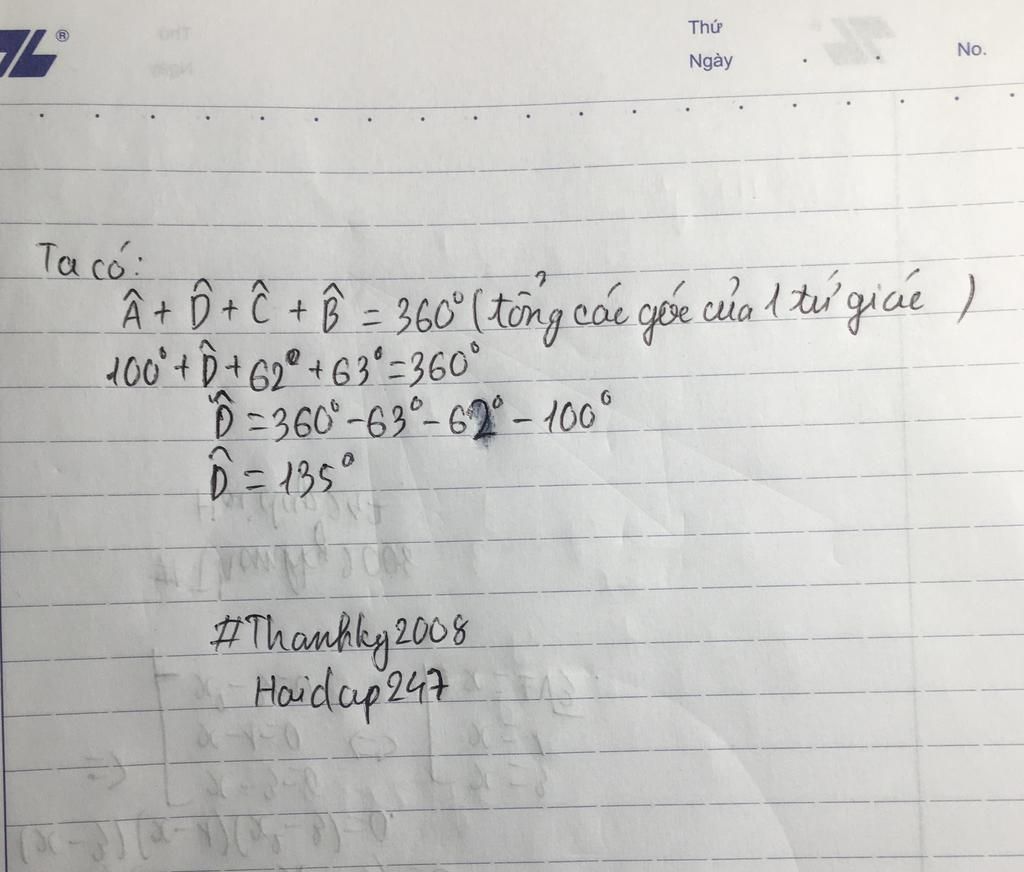 Thứ
Ngày
No.
Ta có:
Â + D̂ + Ĉ + B̂ = 360° (tổng các góc của 1 tứ giác )
100° + D̂ + 62° + 63° = 360°
D̂ = 360° - 63° - 62° - 100°
D̂ = 135°
#Thanhky2008
Hoidap247